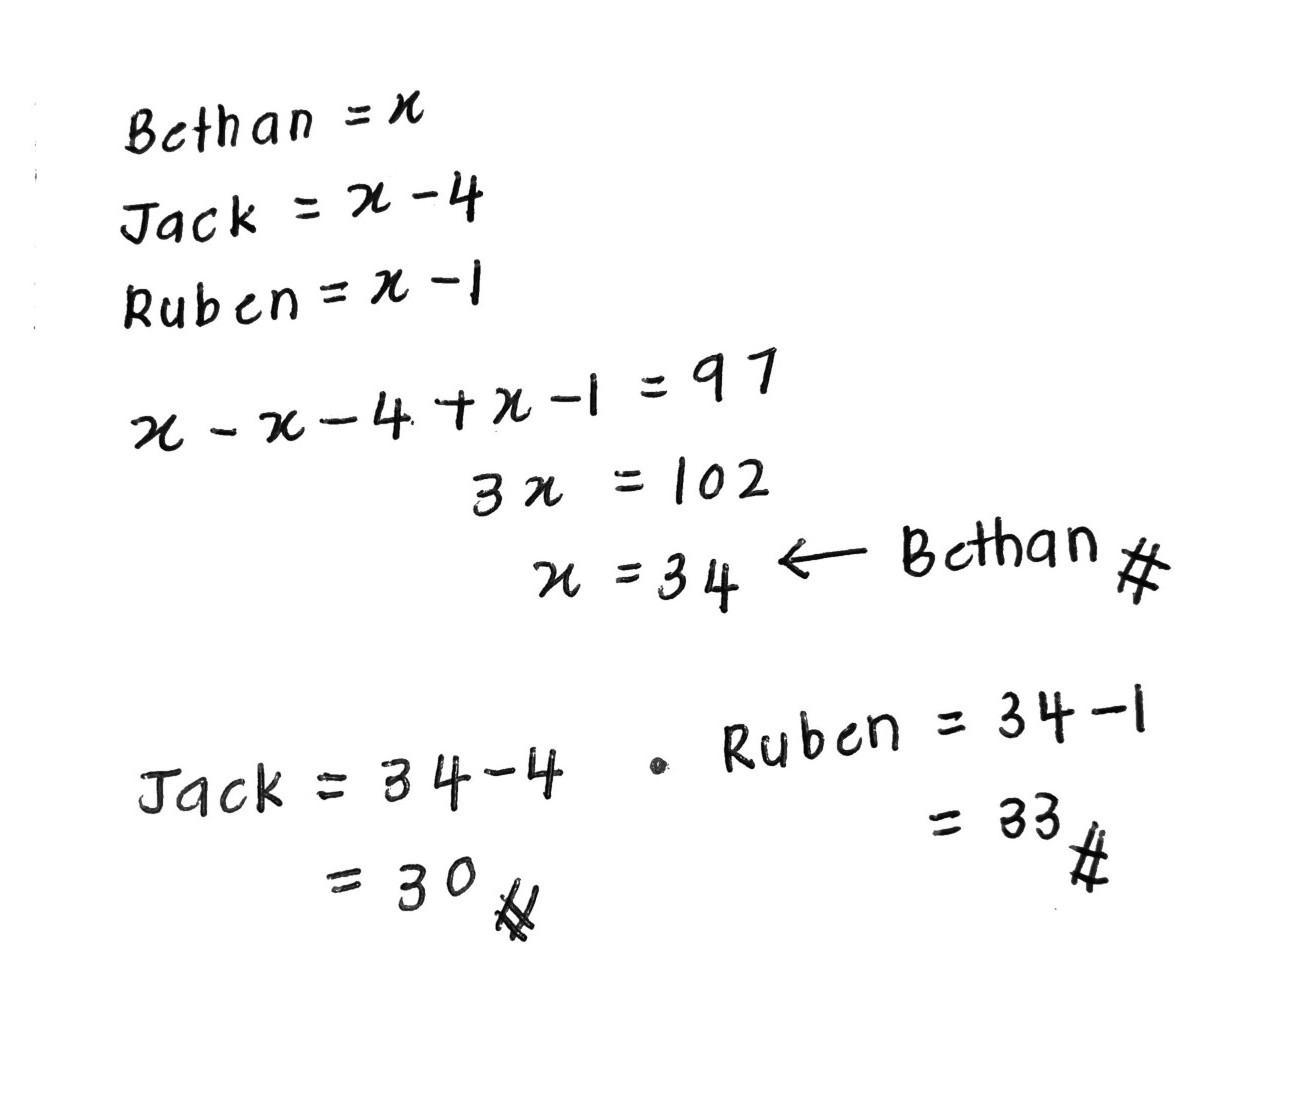 Bethan = x
Jack = x - 4
Ruben = x - 1
x - x - 4 + x - 1 = 97
3x = 102
x = 34 ← Bethan #
Jack = 34 - 4 • Ruben = 34 - 1
= 30 # = 33 #